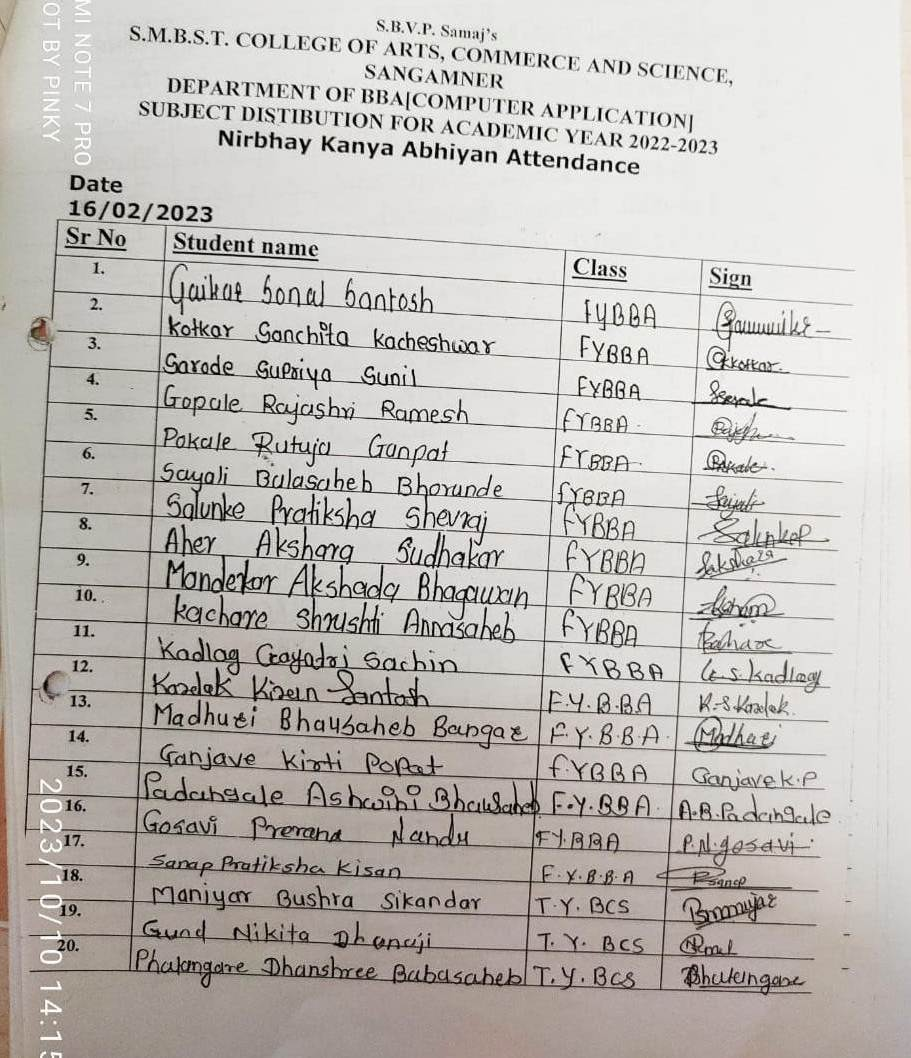 S.B.V.P. Samaj's
S.M.B.S.T. COLLEGE OF ARTS, COMMERCE AND SCIENCE,
SANGAMNER
DEPARTMENT OF BBA[COMPUTER APPLICATION]
SUBJECT DISTIBUTION FOR ACADEMIC YEAR 2022-2023
Nirbhay Kanya Abhiyan Attendance
Date
16/02/2023
Sr No Student name Class Sign
1. Gaikar Sonal Santosh FYBBA
2. Kotkar Sanchita Kacheshwar FYBBA Kotkar
3. Sarode Supriya Sunil FYBBA
4. Gopale Rajashri Ramesh FYBBA
5. Pokale Rutuja Ganpat FYBBA Pokale
6. Sayali Balasaheb Bhorunde FYBBA Sayali
7. Salunke Pratiksha Shevraj FYBBA
8. Aher Akshara Sudhakar FYBBA
9. Mondekar Akshada Bhagawan FYBBA
10. Kachare Shrushti Annasaheb FYBBA
11. Kadlag Gayatri Sachin FYBBA G.S.Kadlag
12. Kardak Kiran Santosh F.Y.B.BA K.S.Kardak.
13. Madhuri Bhausaheb Bangar F.Y.B.B.A. Madhuri
14. Ganjave Kirti Popat F.YBBA Ganjave K.P
15. Padangale Ashwini Bhausaheb F.Y.BBA. A.B.Padangale
16. Gosavi Prerana Nandu FY.BBA P.N.gosavi
17. Sanap Pratiksha Kisan F.Y.B.B.A Psanap
18. Maniyar Bushra Sikandar T.Y. BCS
19. Gund Nikita Dhanaji T.Y. BCS
20. Phatangare Dhanshree Babasaheb T.Y.BCS
MI NOTE 7 PRO
OT BY PINKY
2023/10/10 14:15